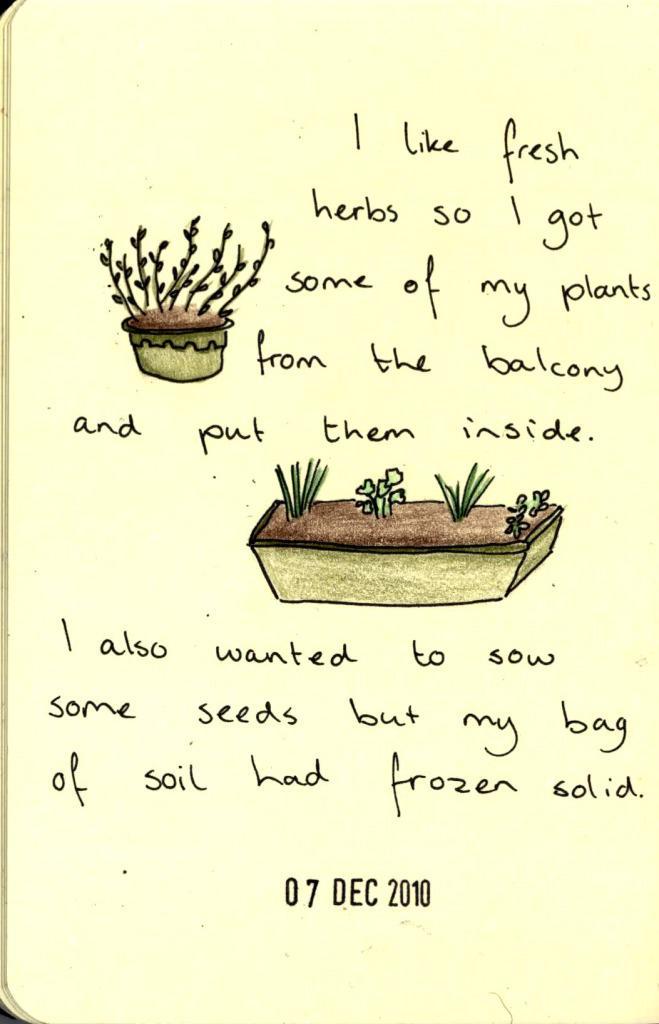 I like fresh
herbs so I got
some of my plants
from the balcony
and put them inside.
I also wanted to sow
some seeds but my bag
of soil had frozen solid.
07 DEC 2010